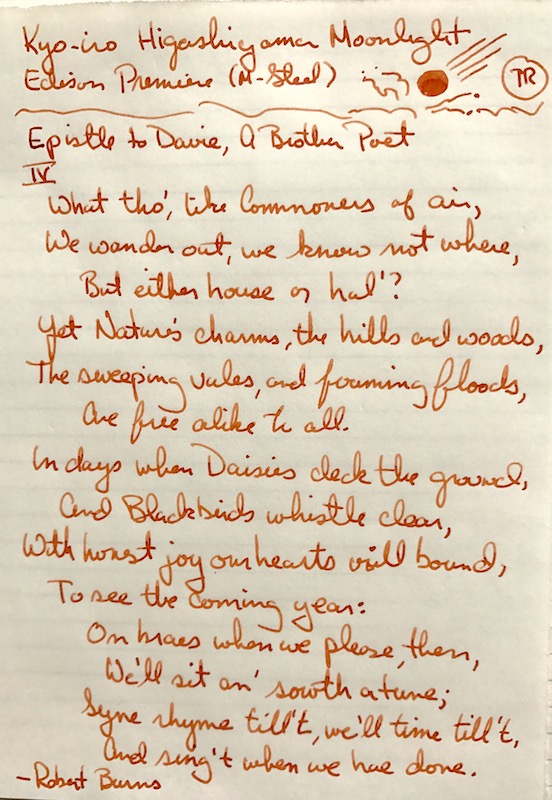 Kyo-iro Higashiyama Moonlight
Edison Premiere (M-Steel)
TR
Epistle to Davie, A Brother Poet
IV
What tho', like Commoners of air,
We wander out, we know not where,
But either house or hal'?
Yet Nature's charms, the hills and woods,
The sweeping vales, and foaming floods,
Are free alike to all.
In days when Daisies deck the ground,
And Blackbirds whistle clear,
With honest joy our hearts will bound,
To see the coming year:
On braes when we please, then,
We'll sit an' sowth a tune;
Syne rhyme till't, we'll time till't,
And sing't when we hae done.
-Robert Burns